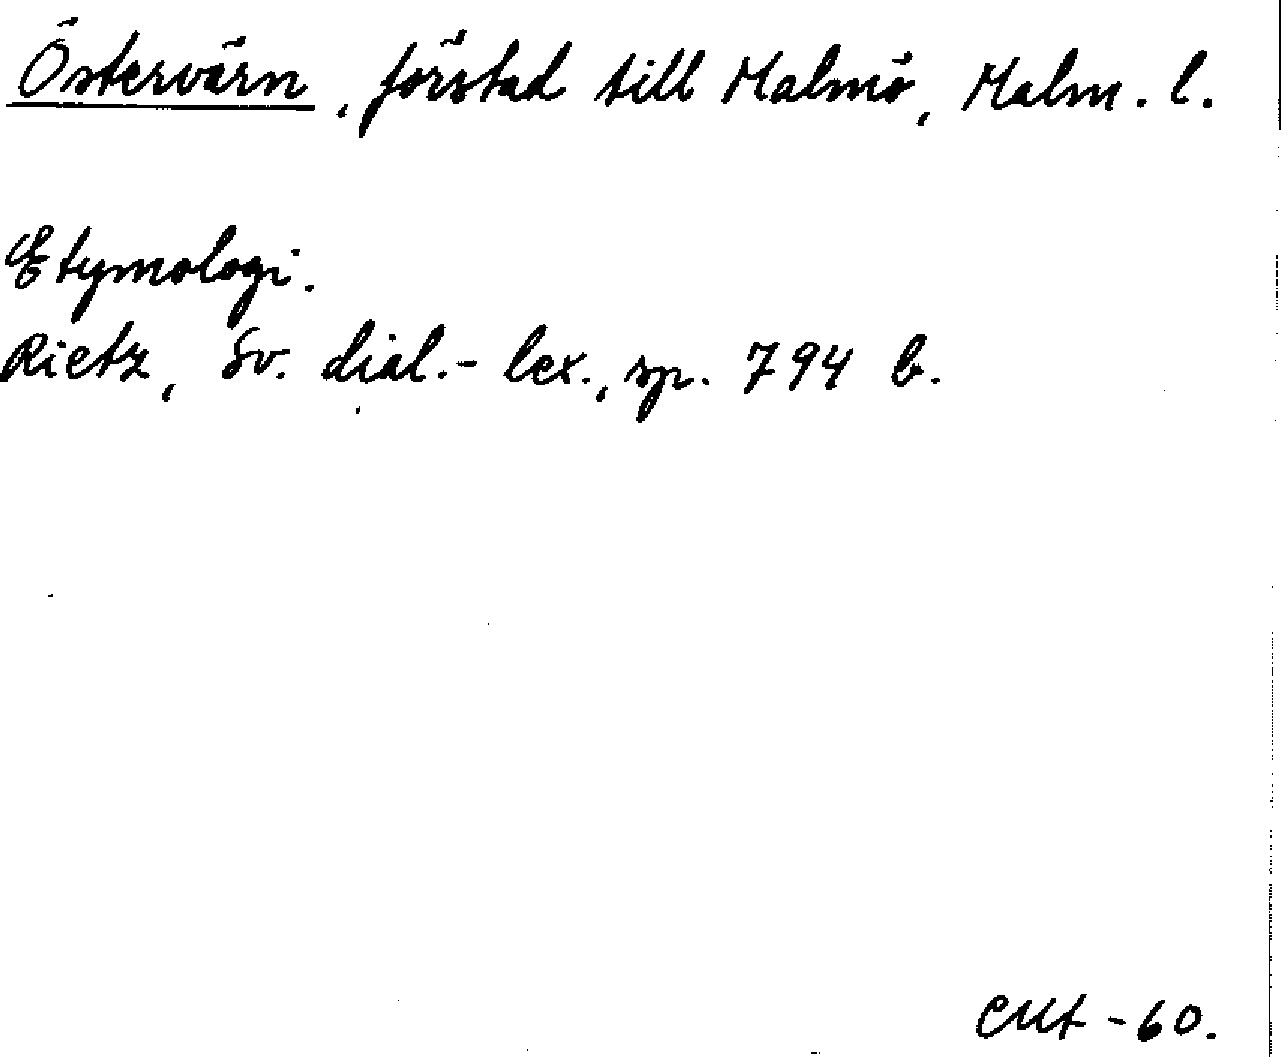 Östervärn, förstad till Malmö, Malm. l.
Etymologi.
Rietz, Sv. dial.-lex., sp. 794 b.
CMt -60.